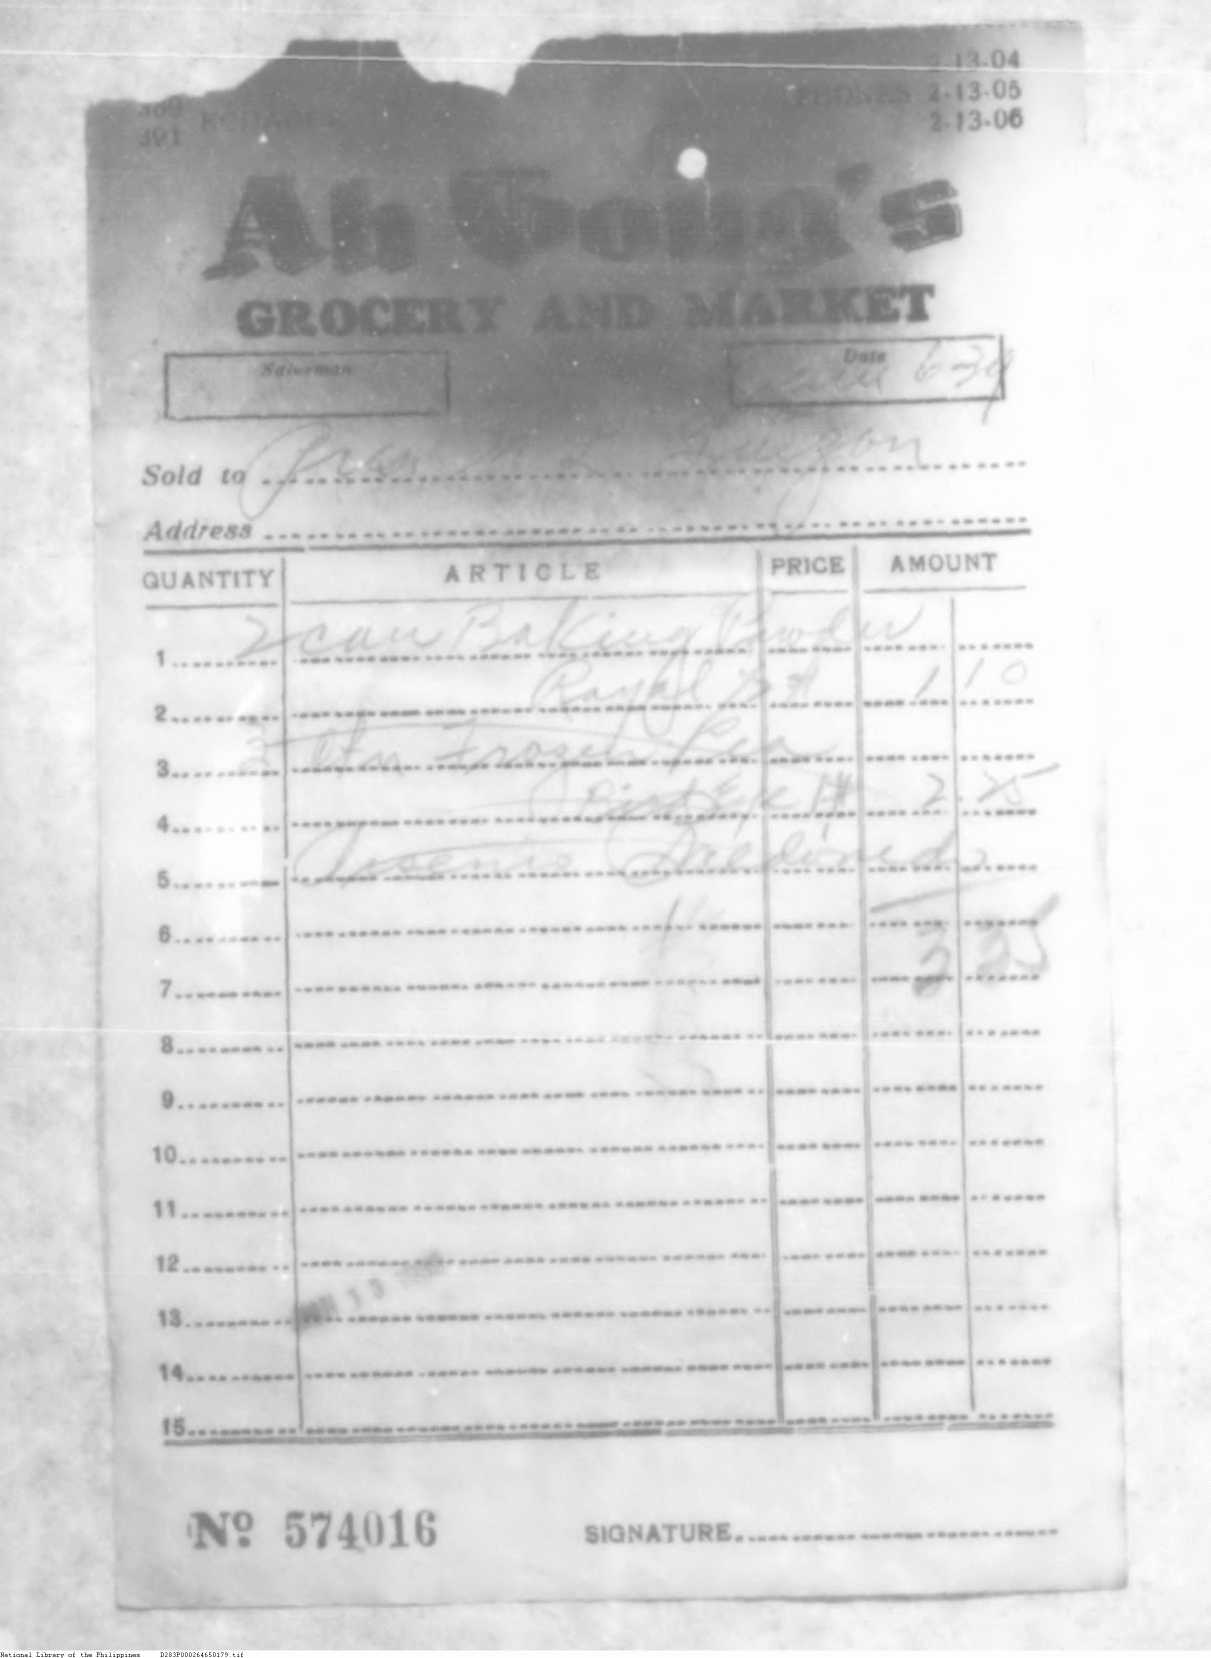 2-13-04
PHONES 2-13-05
2-13-06
389
391
Ah Gong's
GROCERY AND MARKET
Salesman
Date
6-39
Sold to Pres. M. L. Quezon
Address
QUANTITY ARTICLE PRICE AMOUNT
1 2 can Baking Powder
2 Royal 1 10
3 Frozen Pea
4 2.25
5 Arsenio
6
7 3 35
8
9
10
11
12
13
14
15
Nº 574016
SIGNATURE
National Library of the Philippines D283P000264650179.tif